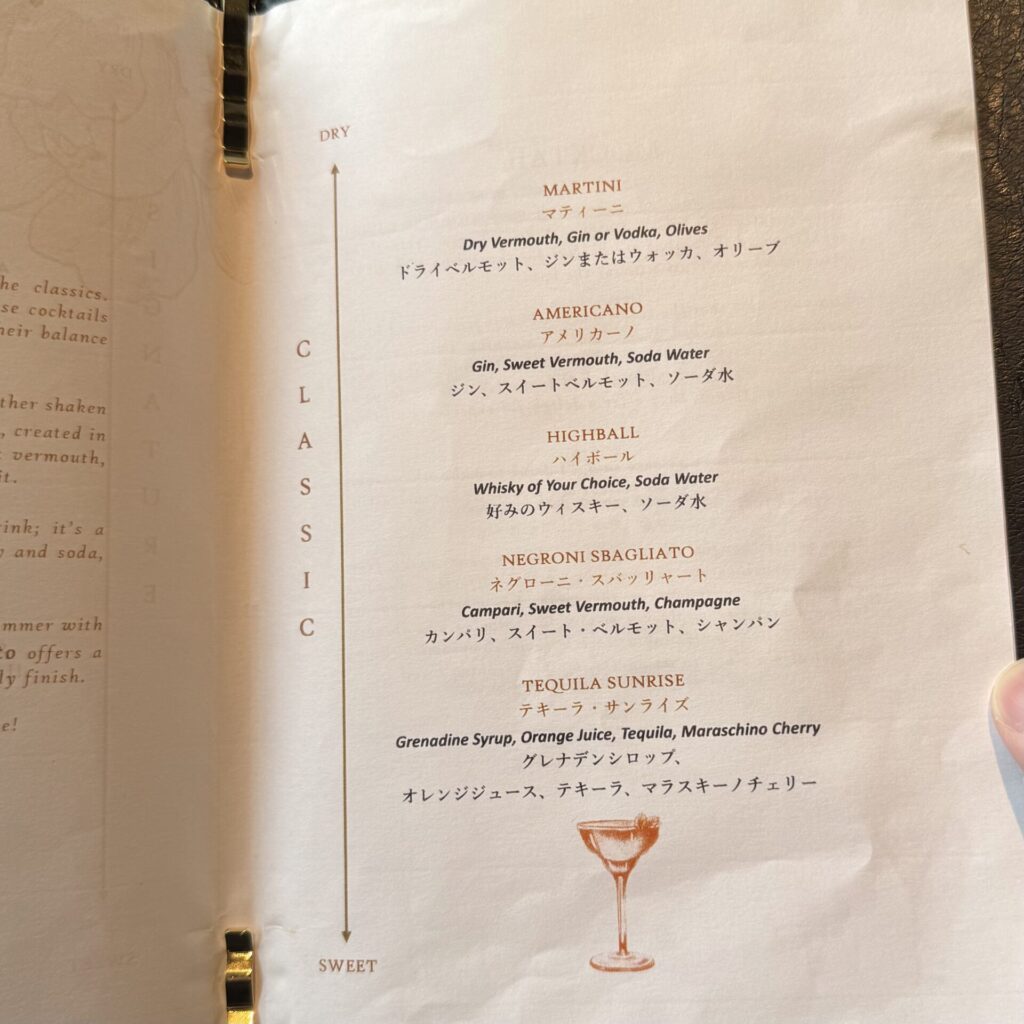 he classics.
se cocktails
heir balance
ther shaken
, created in
vermouth,
it.
ink; it's a
and soda,
mmer with
to offers a
ly finish.
e!
DRY
CLASSIC
SWEET
MARTINI
マティーニ
Dry Vermouth, Gin or Vodka, Olives
ドライベルモット、ジンまたはウォッカ、オリーブ
AMERICANO
アメリカーノ
Gin, Sweet Vermouth, Soda Water
ジン、スイートベルモット、ソーダ水
HIGHBALL
ハイボール
Whisky of Your Choice, Soda Water
好みのウィスキー、ソーダ水
NEGRONI SBAGLIATO
ネグローニ・スバッリャート
Campari, Sweet Vermouth, Champagne
カンパリ、スイート・ベルモット、シャンパン
TEQUILA SUNRISE
テキーラ・サンライズ
Grenadine Syrup, Orange Juice, Tequila, Maraschino Cherry
グレナデンシロップ、
オレンジジュース、テキーラ、マラスキーノチェリー